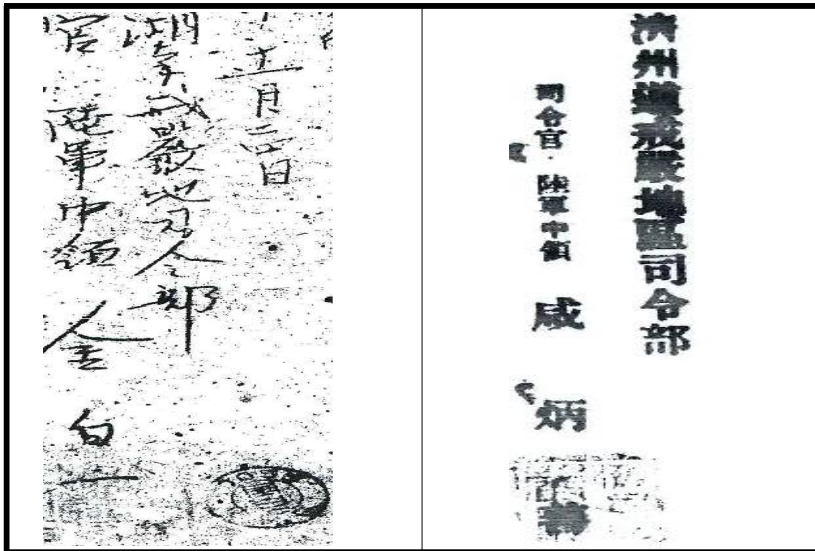 月 日
湖南戒嚴地司令部
官 陸軍中領 金白一
濟州道戒嚴地區司令部
司令官·陸軍中領 咸 炳 善